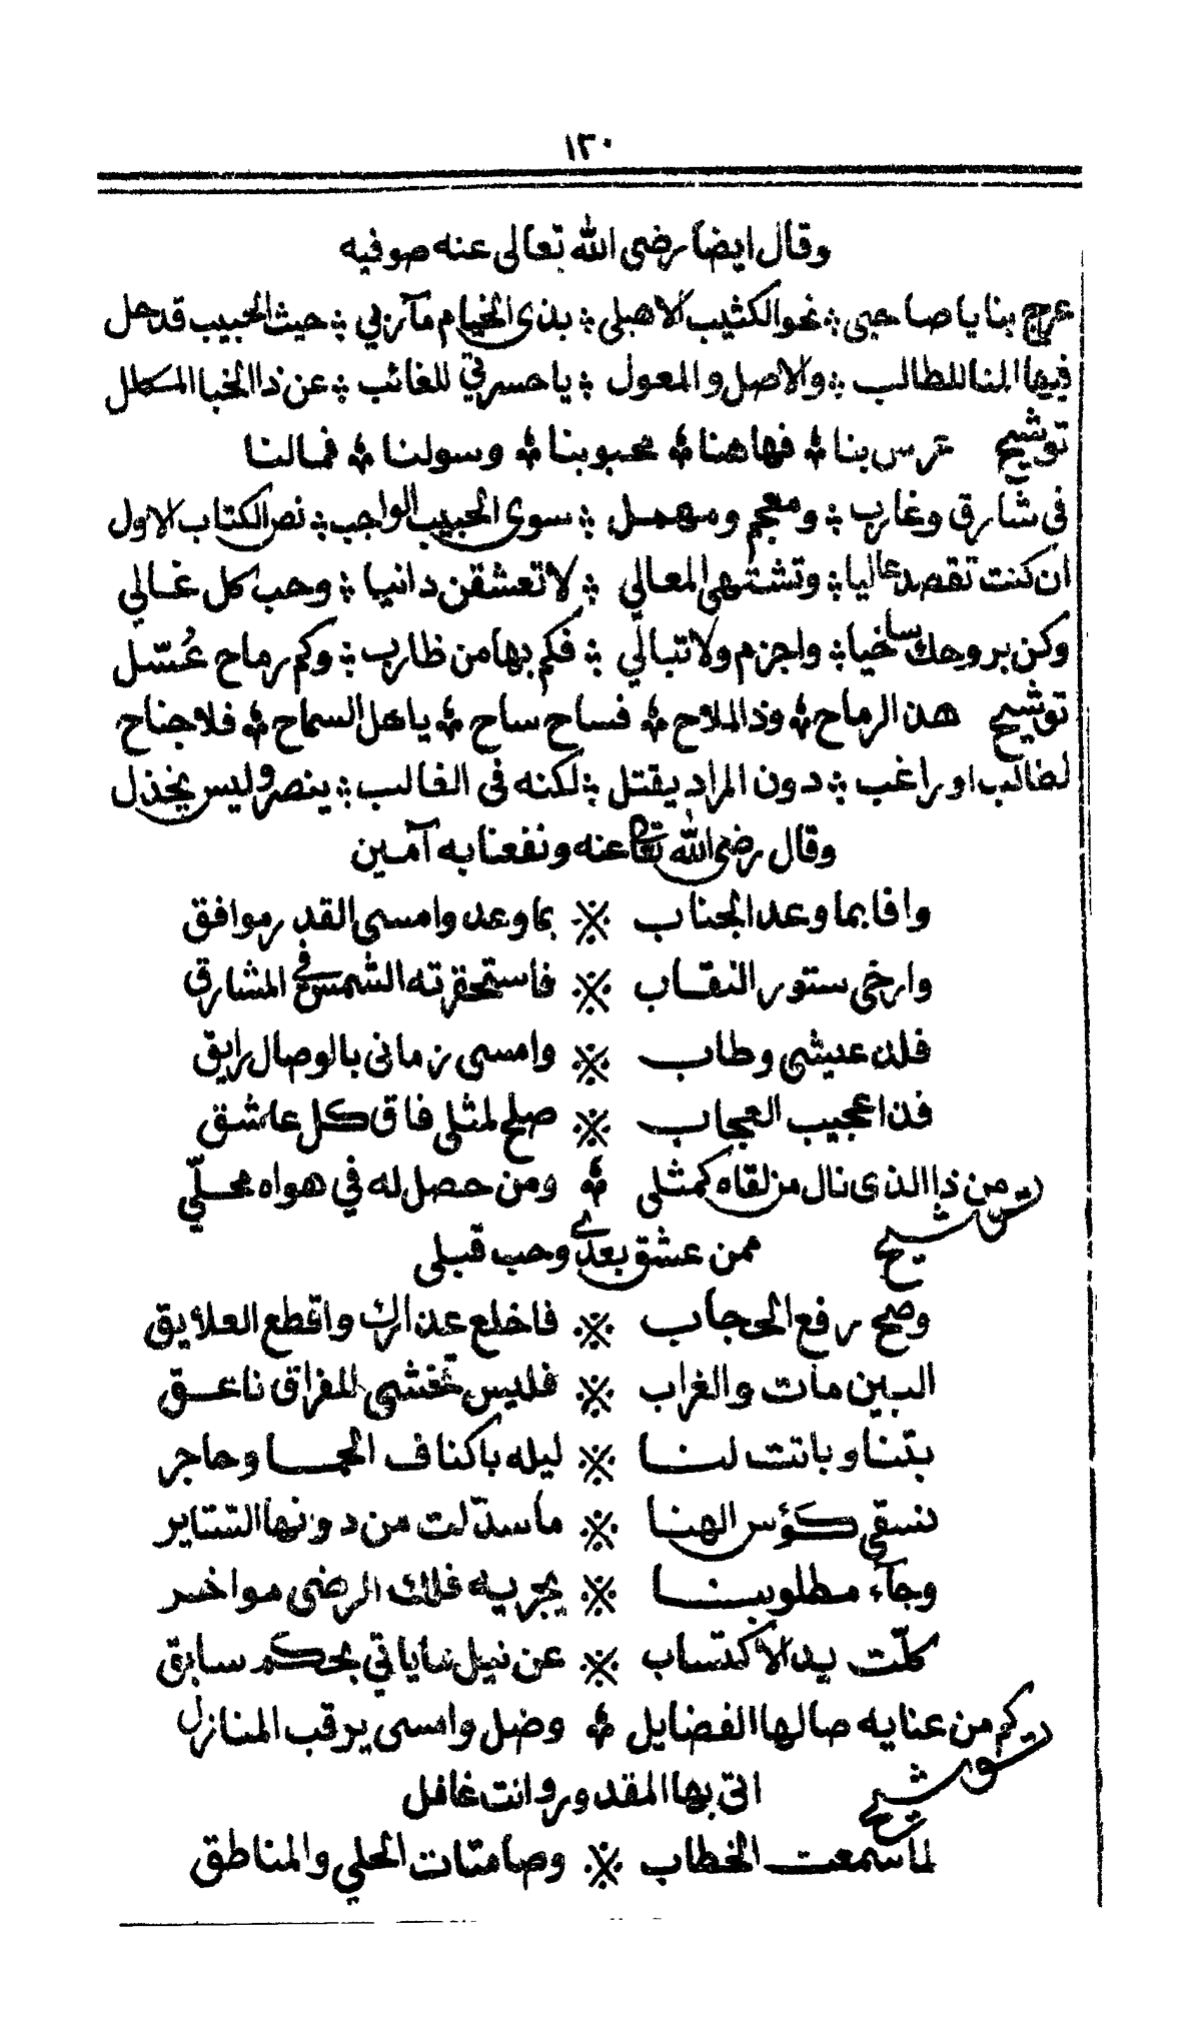 ١٣٠
وقال ايضا رضى الله تعالى عنه صوفيه
عرج بنا يا صاحبى ؞ نحو الكثيب الاهيلى ؞ بذى الخيام مآربي ؞ حيث الحبيب قد حل
فيها المنا للطالب ؞ والاصل والمعول ؞ يا حسرتي للغائب ؞ عن ذا الخبا المسكلل
توشيح عرس بنا ؞ فها هنا ؞ محبوبنا ؞ وسولنا ؞ فمالنا
فى شارق وغارب ؞ ومعجم ومهمل ؞ سوى الحبيب الواجب ؞ نص الكتاب الاول
ان كنت تقصد عاليا ؞ وتشتهى المعالي ؞ لا تعشقن دانيا ؞ وحب كل غالي
وكن بروحك ساخيا ؞ واجزم ولا تبالي ؞ فكم بها من ظارب ؞ وكم رماح عُسّل
توشيح هذن الرماح ؞ وذالملاح ؞ فساح ساح ؞ ياهل السماح ؞ فلا جناح
لطالب او راغب ؞ دون المراد يقتل ؞ لكنه فى الغالب ؞ ينصر وليس يخذل
وقال رضى الله تعا عنه ونفعنا به آمين
وافا بما وعد الجناب ※ بما وعد وامسى القدر موافق
وارخى ستور النقاب ※ فاستحقرته الشمس فى المشارق
فلذ عيشى وطاب ※ وامسى زمانى بالوصال رايق
فذا عجيب العجاب ※ صلح لمثلى فاق كل عاشق
توشيح من ذا الذى نال من لقاه كمثلى ؞ ومن حصل له في هواه محلّي
ممن عشق بعدي وحب قبلى
وصح رفع الحجاب ※ فاخلع عذارك واقطع العلايق
البين مات والغراب ※ فليس تخشى للفراق ناعق
بتنا وباتت لنا ※ ليله باكناف الحما وحاجر
نسقى كؤس الهنا ※ ما سدّلت من دونها الستاير
وجآء مطلوبنا ※ يجريه فلك الرضى مواخر
كلّت يد الاكتساب ※ عن نيل ياياتي بحكم سابق
توشيح كم من عنايه صالها الفضايل ؞ وضل وامسى يرقب المنازل
اتى بها المقدور وانت غافل
لما سمعت الخطاب ※ وصامتات الحلي والمناطق